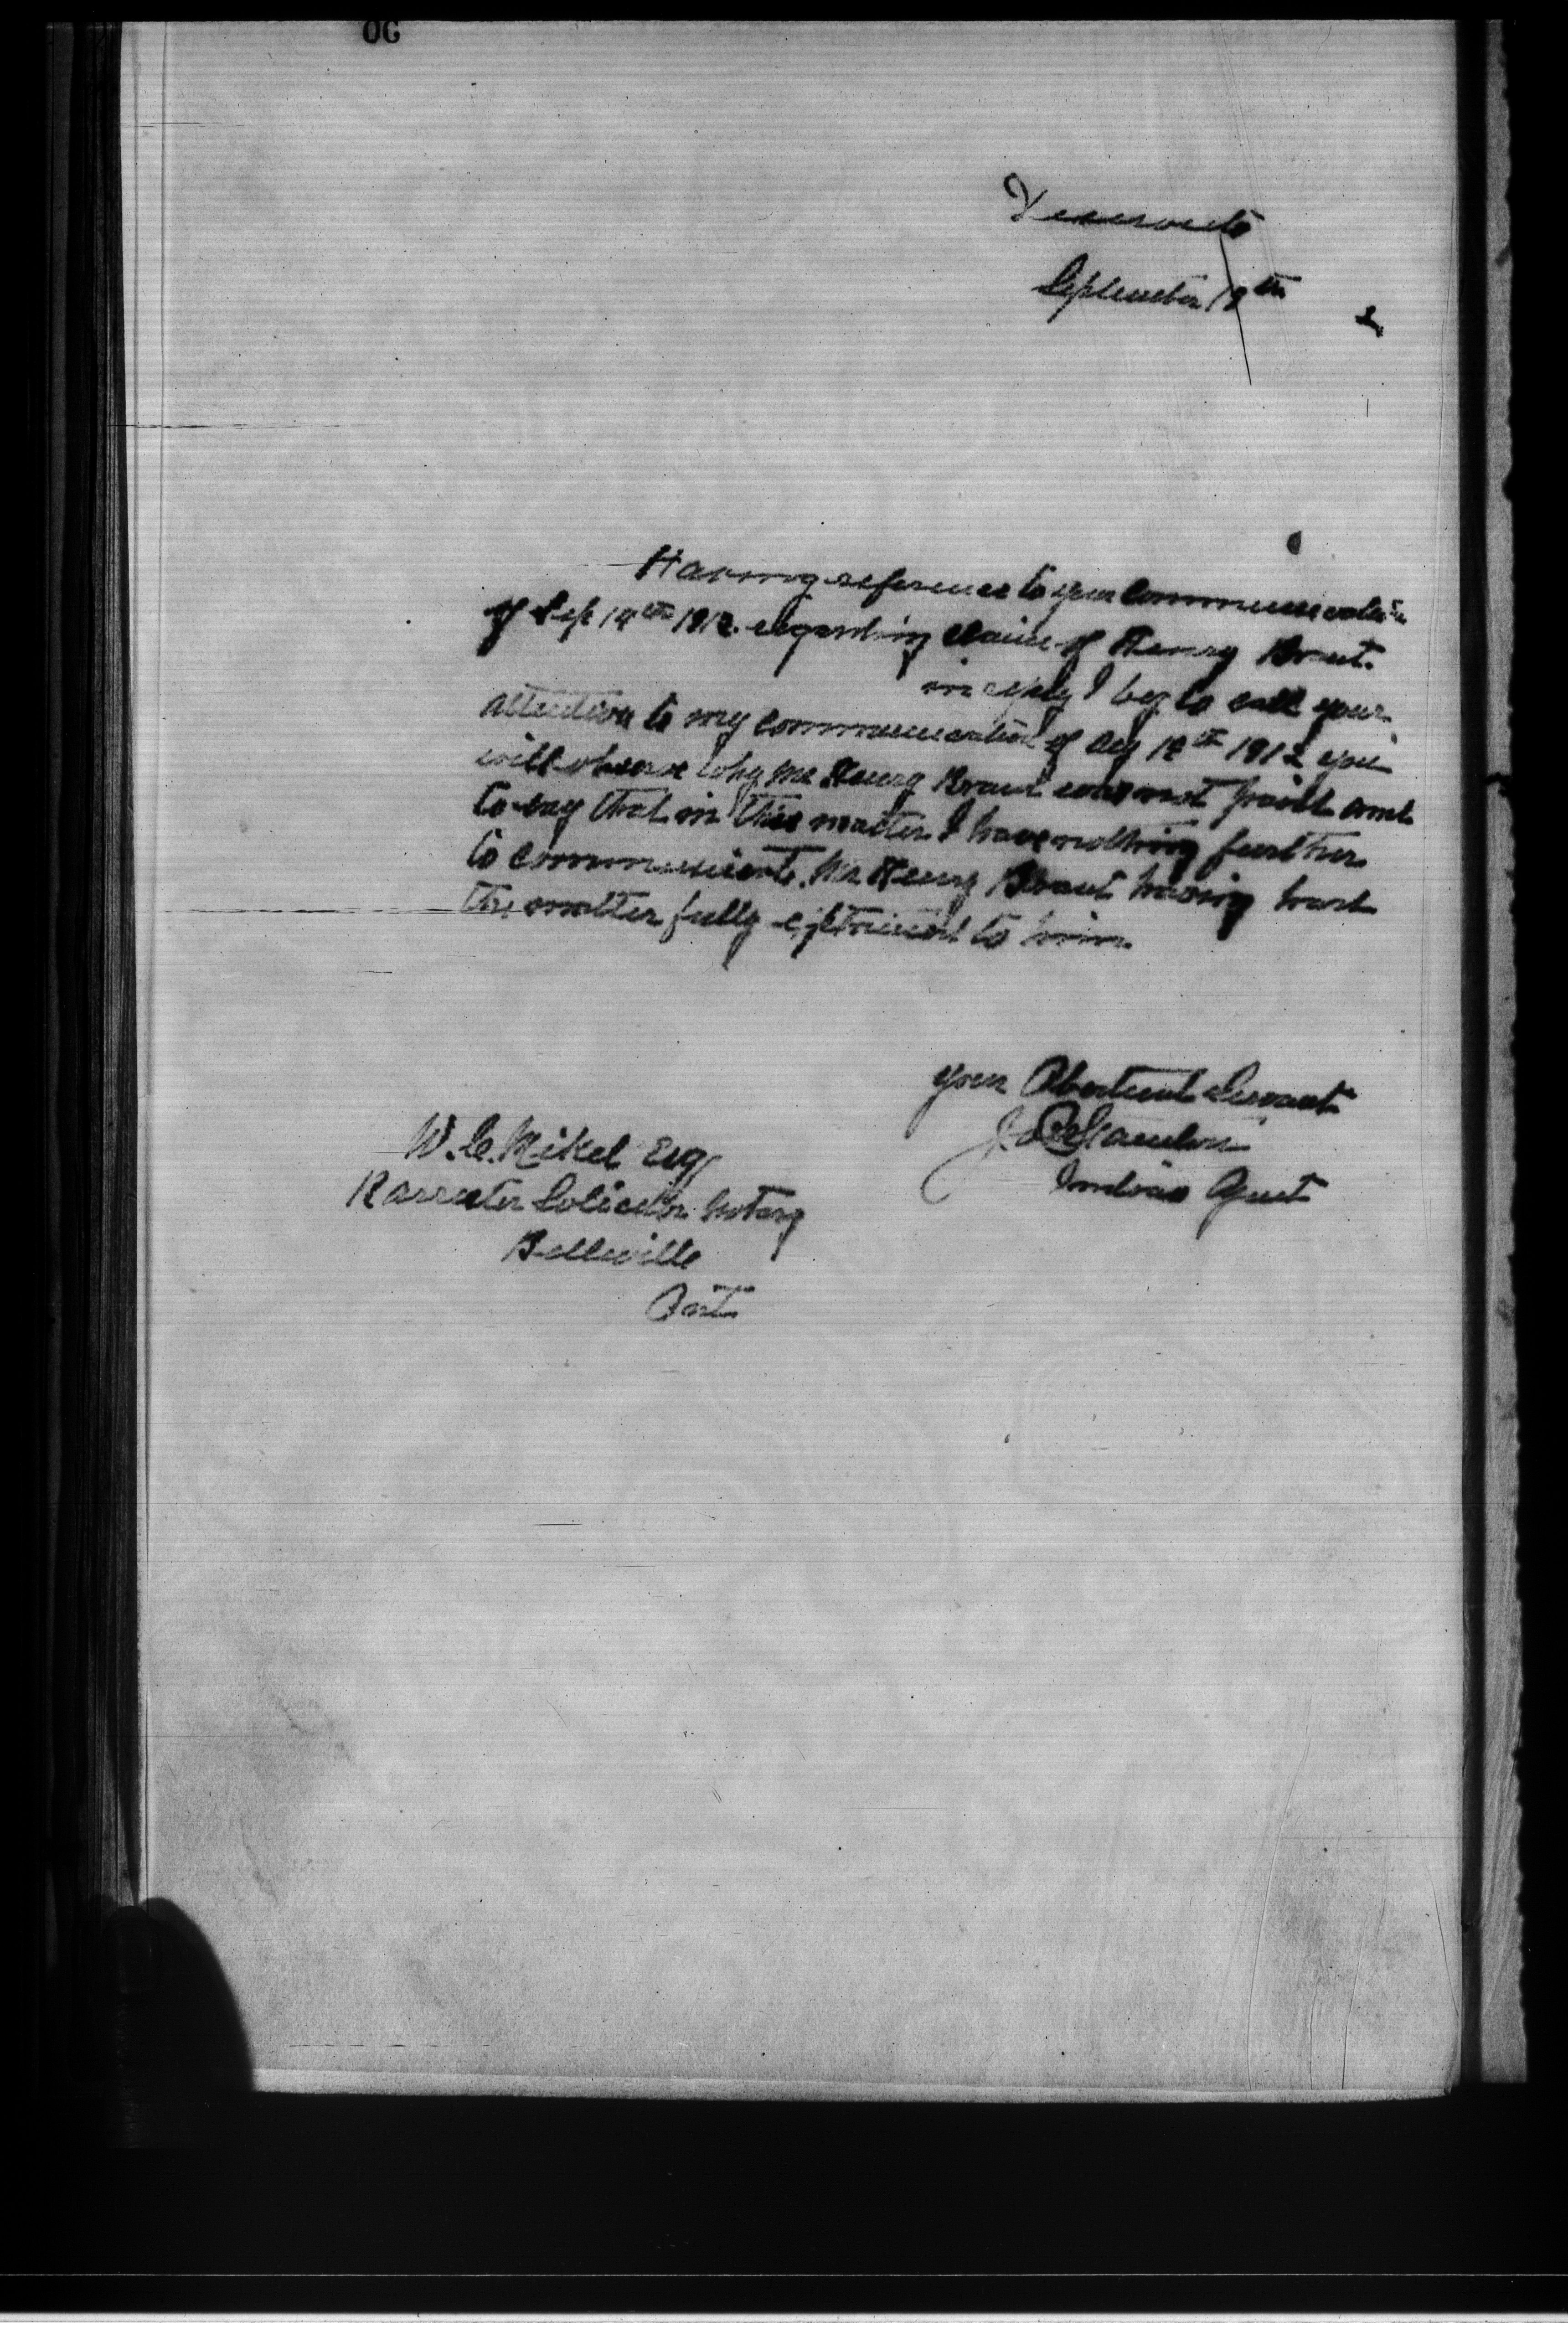 Deseronto
September 19th
Having reference to your Communication
of Sep 14th 1912. regarding claim of Henry Brant.
in reply I beg to call your
attention to my communication of Aug 12th 1912 you
will observe why Mr. Henry Brant was not paid and
to say that in this matter I have nothing further
to communicate. Mr Henry Brant having had
the matter fully explained to him
your Obedient Servant
Indian Agent
W. C. Mikel Esq
Barrister Solicitor Notary
Belleville
Ont